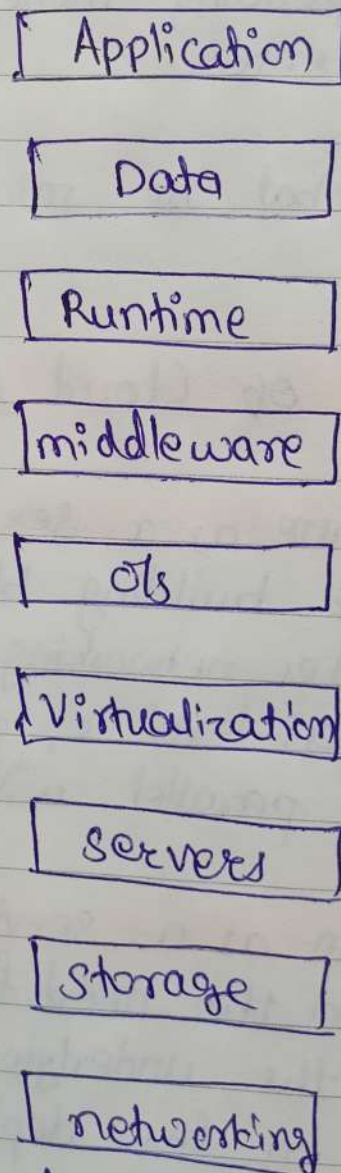 Application
Data
Runtime
middleware
O/s
Virtualization
servers
storage
networking